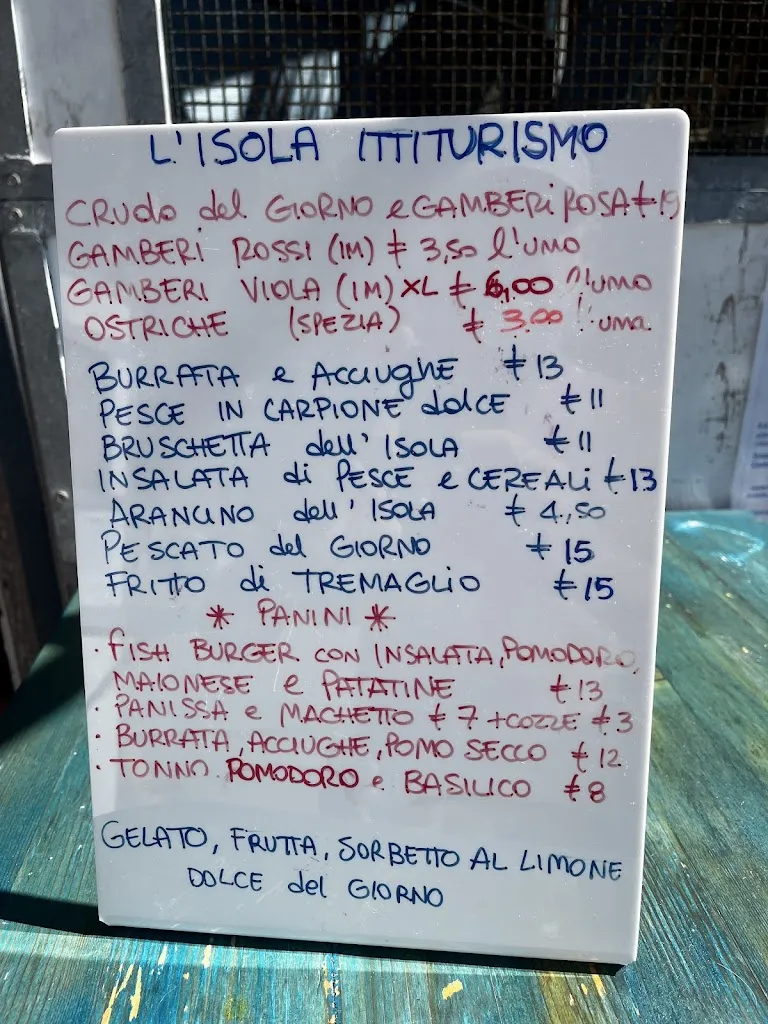 L'ISOLA ITTITURISMO
CRUDO del GIORNO e GAMBERI ROSA € 15
GAMBERI ROSSI (IM) € 3,50 l'UNO
GAMBERI VIOLA (IM) XL € 6,00 l'UNO
OSTRICHE (SPEZIA) € 3.00 l'una.
BURRATA e ACCIUGHE € 13
PESCE IN CARPIONE dolCE € 11
BRUSCHETTA dell' ISOLA € 11
INSALATA di PESCE e CEREALi € 13
ARANCINO dell' ISOLA € 4,50
PESCATO del GIORNO € 15
FRITTO di TREMAGLIO € 15
* PANINI *
· FISH BURGER CON INSALATA, POMODORO,
MAIONESE e PATATINE € 13
· PANISSA e MACHETTO € 7 + COZZE € 3
· BURRATA, ACCIUGHE, POMO SECCO € 12
· TONNO. POMODORO e BASILICO € 8
GELATO, FRUTTA, SORBETTO AL LIMONE
DOLCE del GIORNO